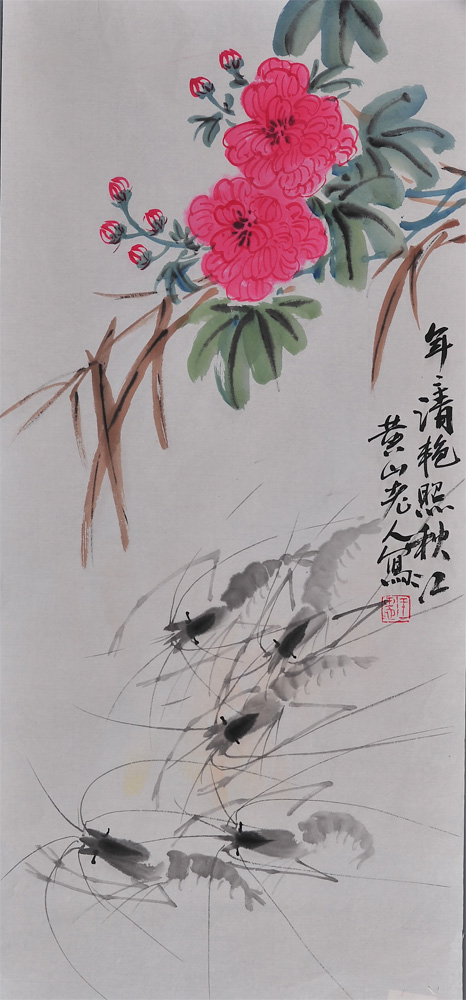 年年清艳照秋江
黄山老人写